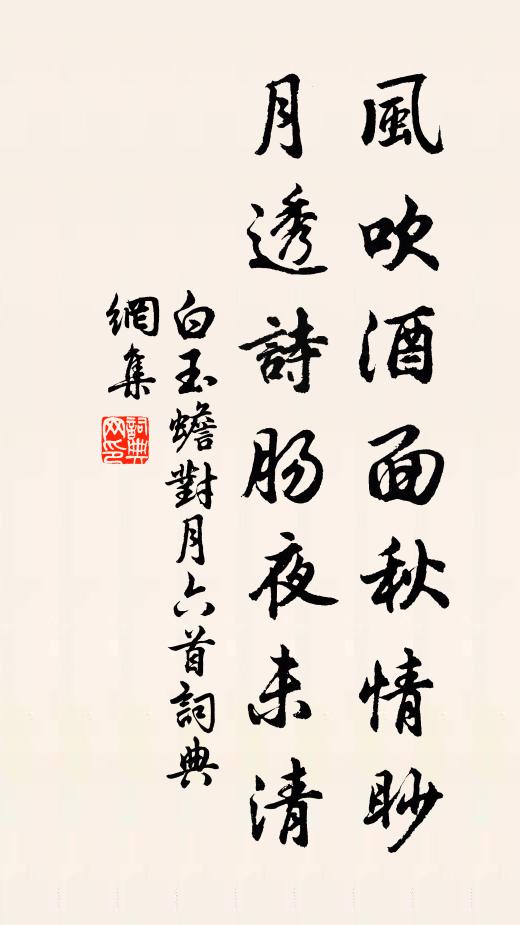 風吹酒面秋情眇
月透詩肠夜未清
白玉蟾對月六首詞典
網集
詞典
网印